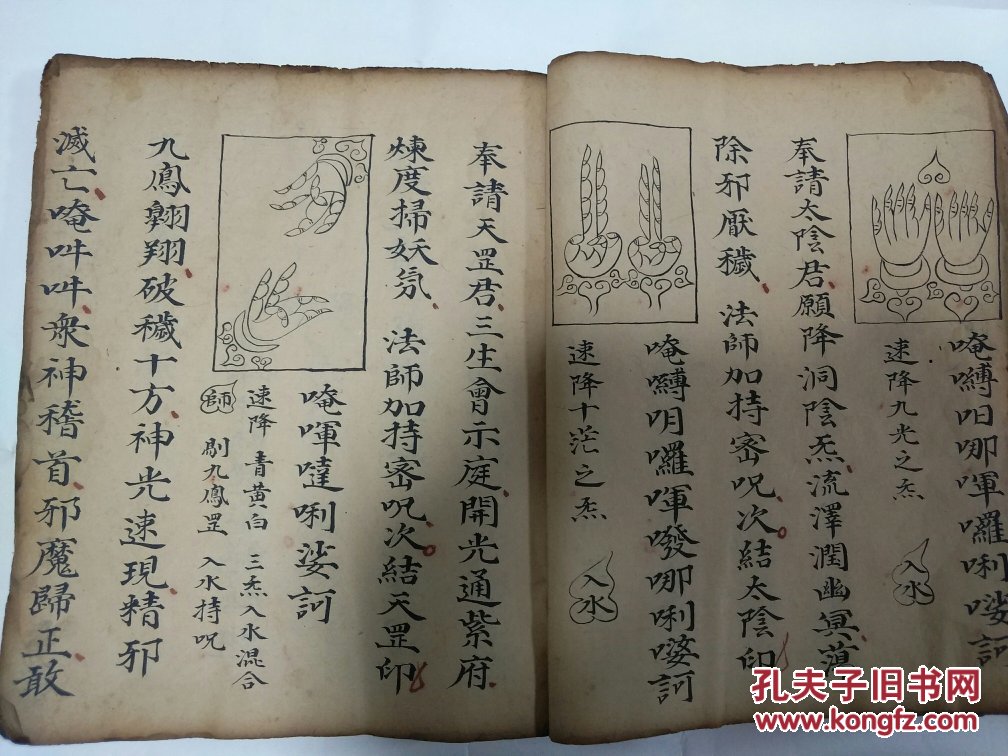 唵嚩
哪㖇囉唎娑訶
速降九光之炁
入水
奉請太陰君願降洞陰炁流澤潤幽冥蕩
除邪厭穢 法師加持密呪次結太陰印
唵嚩
囉㖇
哪唎娑訶
速降十茫之炁
入水
奉請天罡君三生會示庭開光通紫府
煉度掃妖氛 法師加持密呪次結天罡印
唵㖇噠唎娑訶
速降 青黃白 三炁入水混合
師 剔九鳳罡 入水持呪
九鳳翺翔破穢十方神光速現精邪
滅亡唵吽吽衆神稽首邪魔歸正敢
孔夫子旧书网
www.kongfz.com